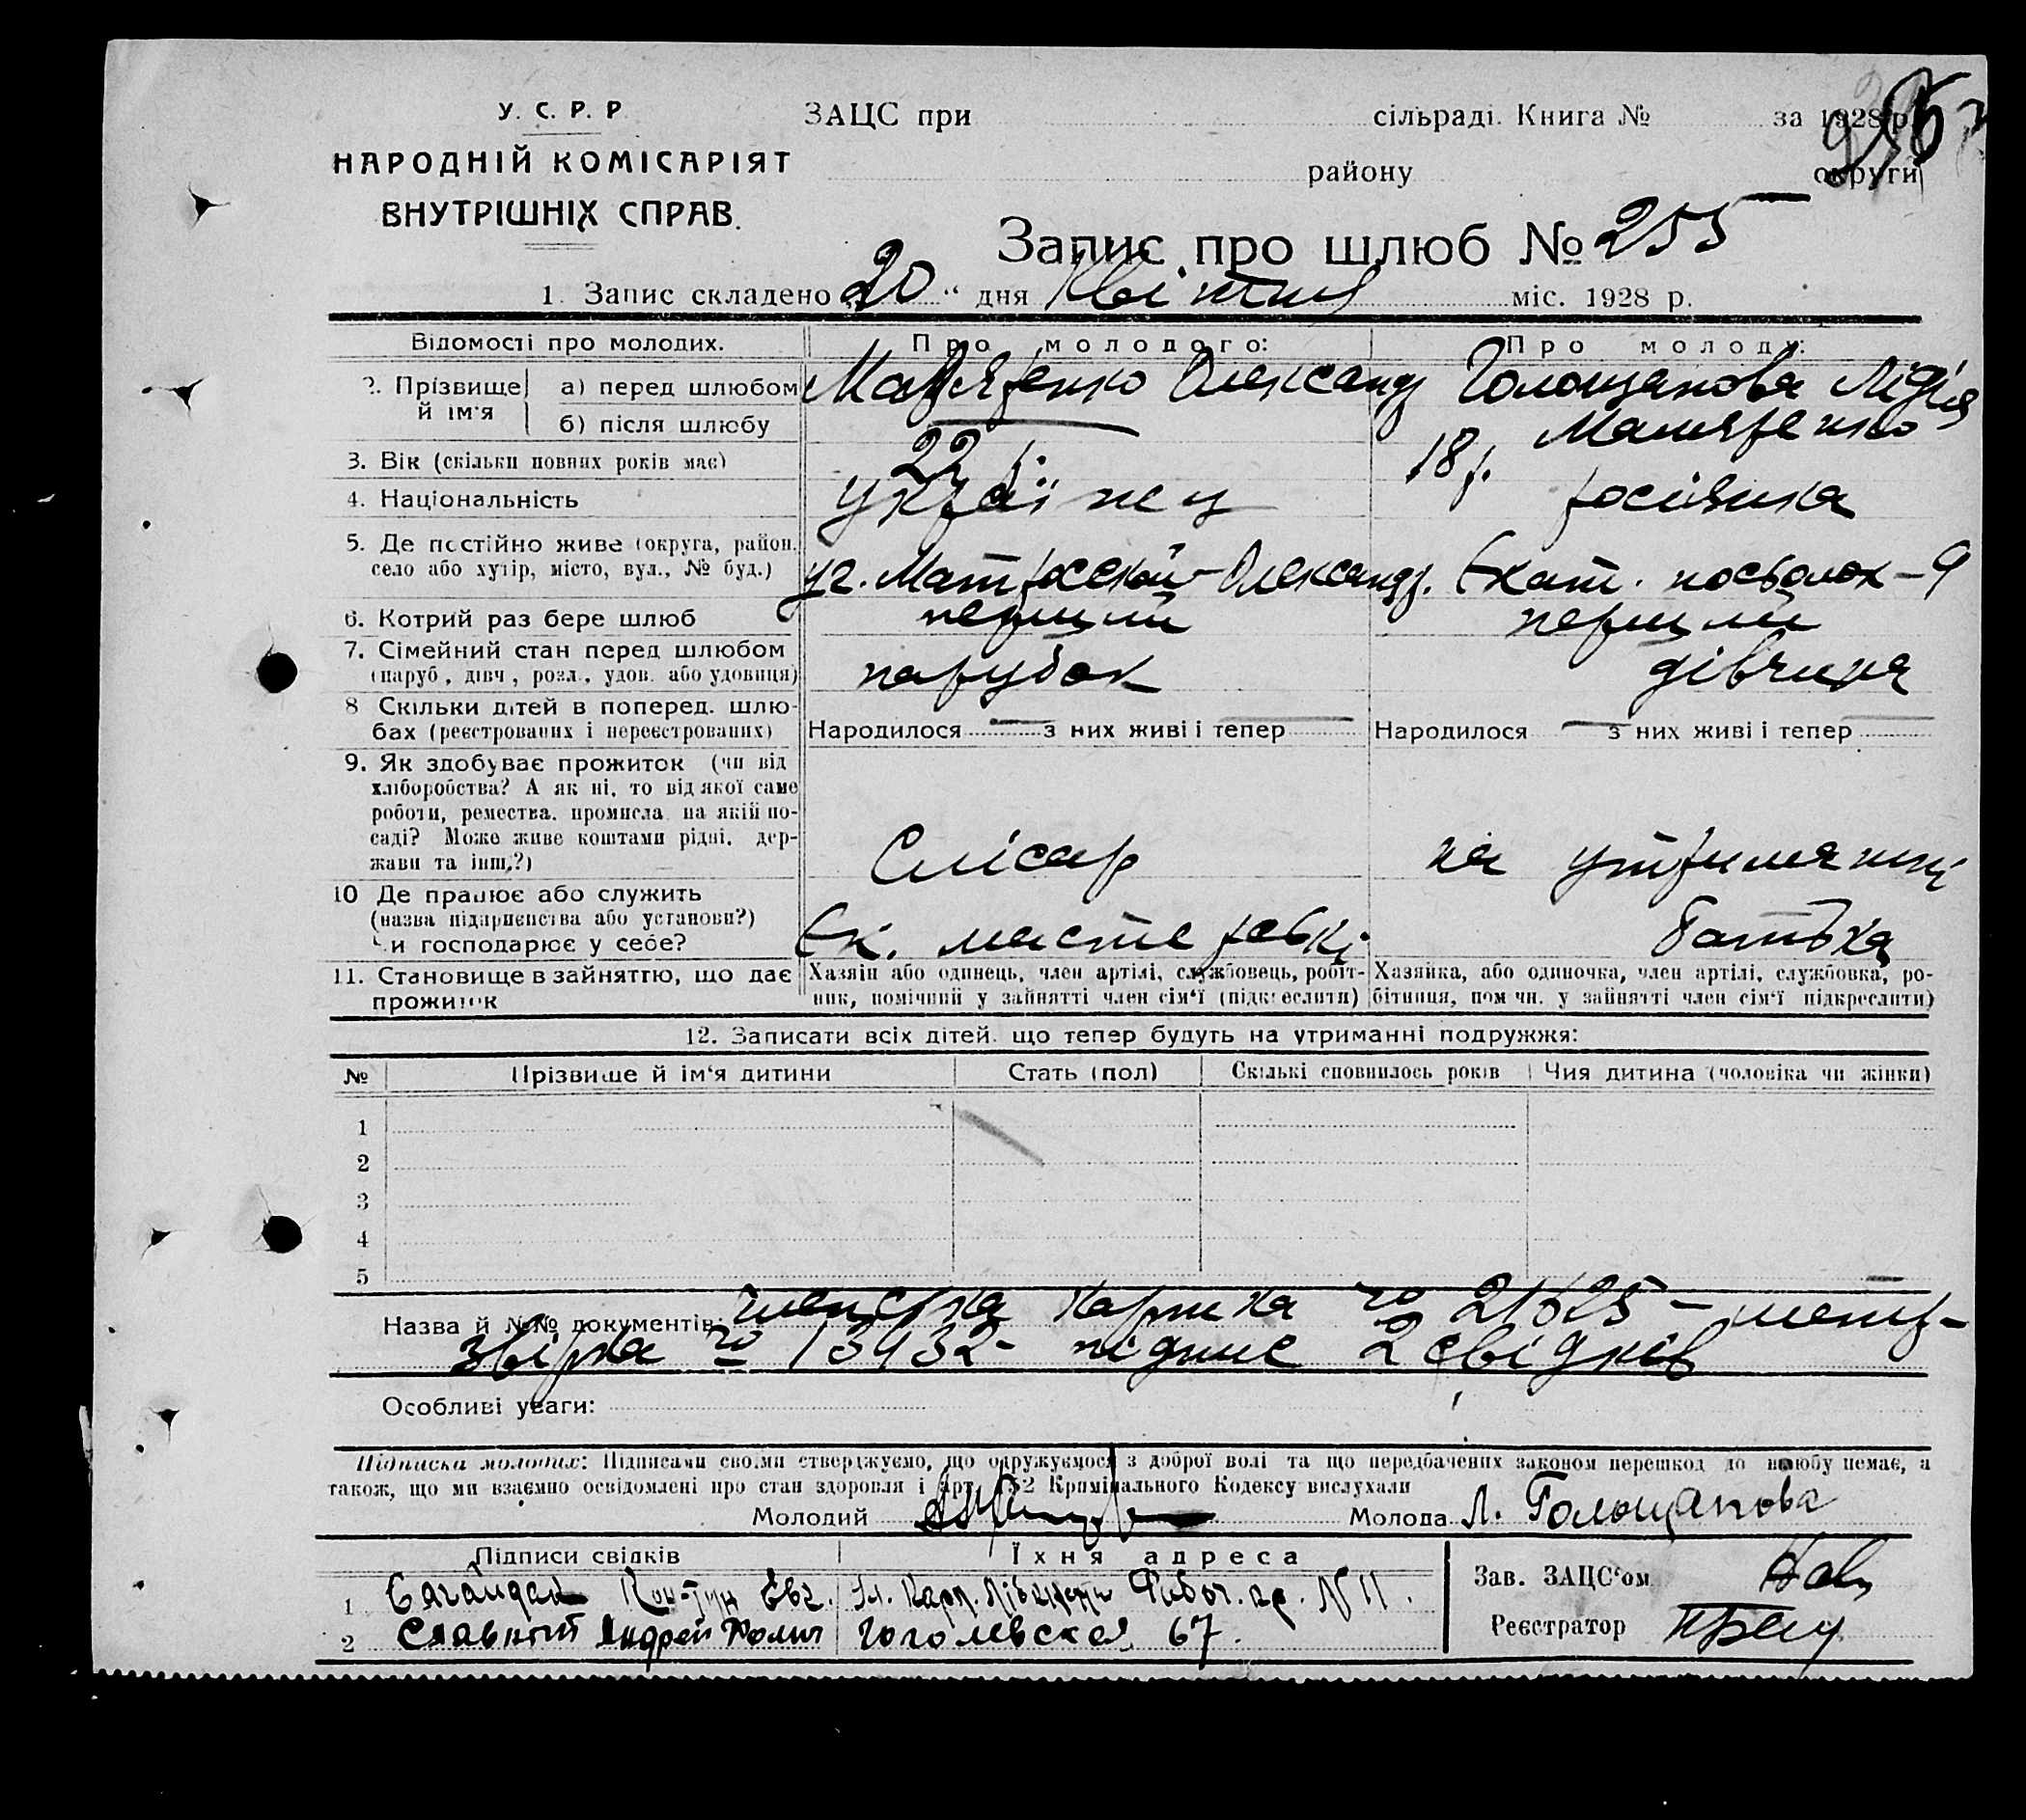 У. С. Р. Р.
НАРОДНІЙ КОМІСАРІЯТ
ВНУТРІШНІХ СПРАВ.
ЗАЦС при сільраді. Книга № за 1928 р.
району округи
Запис про шлюб № 255
1. Запис складено „20“ дня Квітня міс. 1928 р.
Відомості про молодих. Про молодого: Про молоду:
2. Прізвище й ім'я
а) перед шлюбом Олександр Голощапова Лідія
б) після шлюбу
3. Вік (скільки повних років має) 22 р. 18 р.
4. Національність українец росіянка
5. Де постійно живе (округа, район, село або хутір, місто, вул., № буд.) Екат. посьолок – 9
6. Котрий раз бере шлюб перший перший
7. Сімейний стан перед шлюбом (паруб., дівч., розл., удов. або удовиця) парубок дівчина
8 Скільки дітей в поперед. шлюбах (реєстрованих і нереєстрованих) Народилося — з них живі і тепер — Народилося — з них живі і тепер —
9. Як здобуває прожиток (чи від
хліборобства? А як ні, то від якої саме
роботи, ремества, промисла на якій по-
саді? Може живе коштами рідні, дер-
жави та інш.?) Слісар на утриманні
10 Де працює або служить
(назва підприємства або установи?)
Чи господарює у себе? Єк. батька
11. Становище в зайняттю, що дає прожиток
Хазяїн або одинець, член артілі, службовець, робіт-
ник, помічний у зайнятті член сім'ї (підкреслити)
Хазяйка, або одиночка, член артілі, службовка, ро-
бітниця, пом чн. у зайнятті член сім'ї підкреслити)
12. Записати всіх дітей. що тепер будуть на утриманні подружжя:
№ Прізвище й ім'я дитини Стать (пол) Скількі сповнилось років Чия дитина (чоловіка чи жінки)
1
2
3
4
5
Назва й №№ документів: членська карпика № 21625 –
№ 13932 – підпис 2 свідків
Особливі уваги:
Підписка молодих: Підписами своїми стверджуємо, що одружуємося з доброї волі та що передбачених законом перешкод до шлюбу немає, а
також, що ми взаємно освідомлені про стан здоровля і арт. 152 Кримінального Кодексу вислухали
Молодий Молода Л. Голощапова
Підписи свідків Їхня адреса
1 Сагайдак Евг. № 11.
2 Славный Андрей Гоголевская 67.
Зав. ЗАЦС'ом
Реєстратор